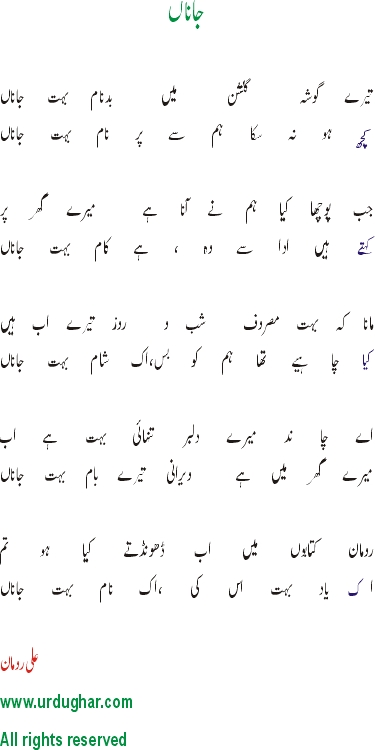 جاناں
تیرے گوشہ گلشن میں بدنام بہت جاناں
کچھ ہو نہ سکا ہم سے پر نام بہت جاناں
جب پوچھا کیا ہم نے آنا ہے میرے گھر پر
کہتے ہیں ادا سے وہ ، ہے کام بہت جاناں
مانا کہ بہت مصروف شب و روز تیرے اب ہیں
کیا چا ہیے تھا ہم کو بس،اک شام بہت جاناں
اے چا ند میرے دلبر تنہائی بہت ہے اب
میرے گھر میں ہے ویرانی تیرے بام بہت جاناں
رومان کتابوں میں اب ڈھونڈتے کیا ہو تم
اک یاد بہت اس کی ،اک نام بہت جاناں
علی رومان
www.urdughar.com
All rights reserved